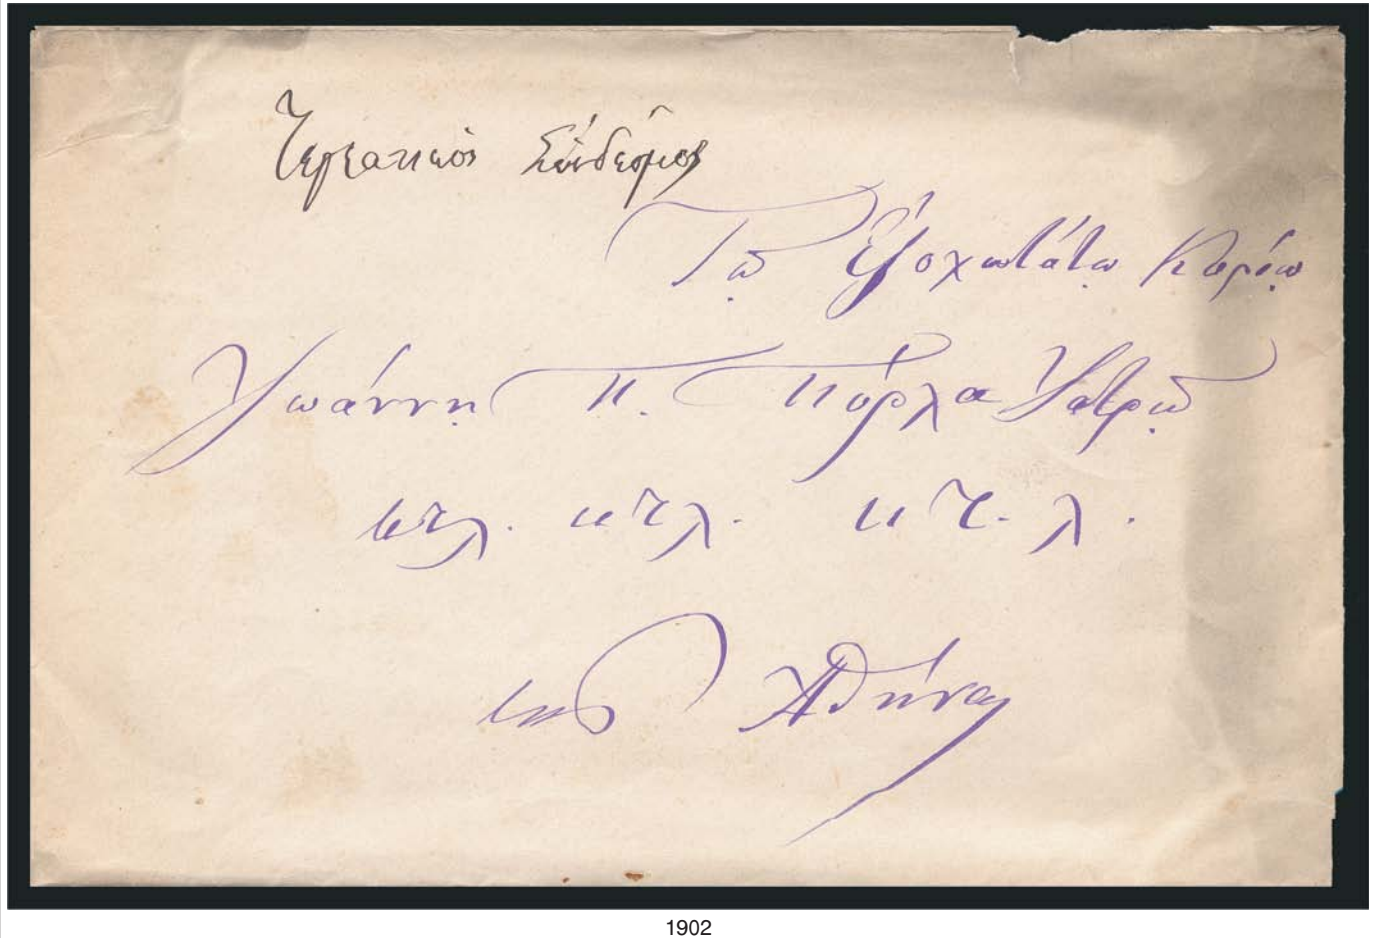 Τεγεατικὸς Σύνδεσμος
Τῷ Ἐξοχωτάτῳ Κυρίῳ
Ἰωάννῃ Π. Πύρλα Ἰατρῷ
κτλ. κτλ. κ.τ.λ.
εις Ἀθήνας
1902